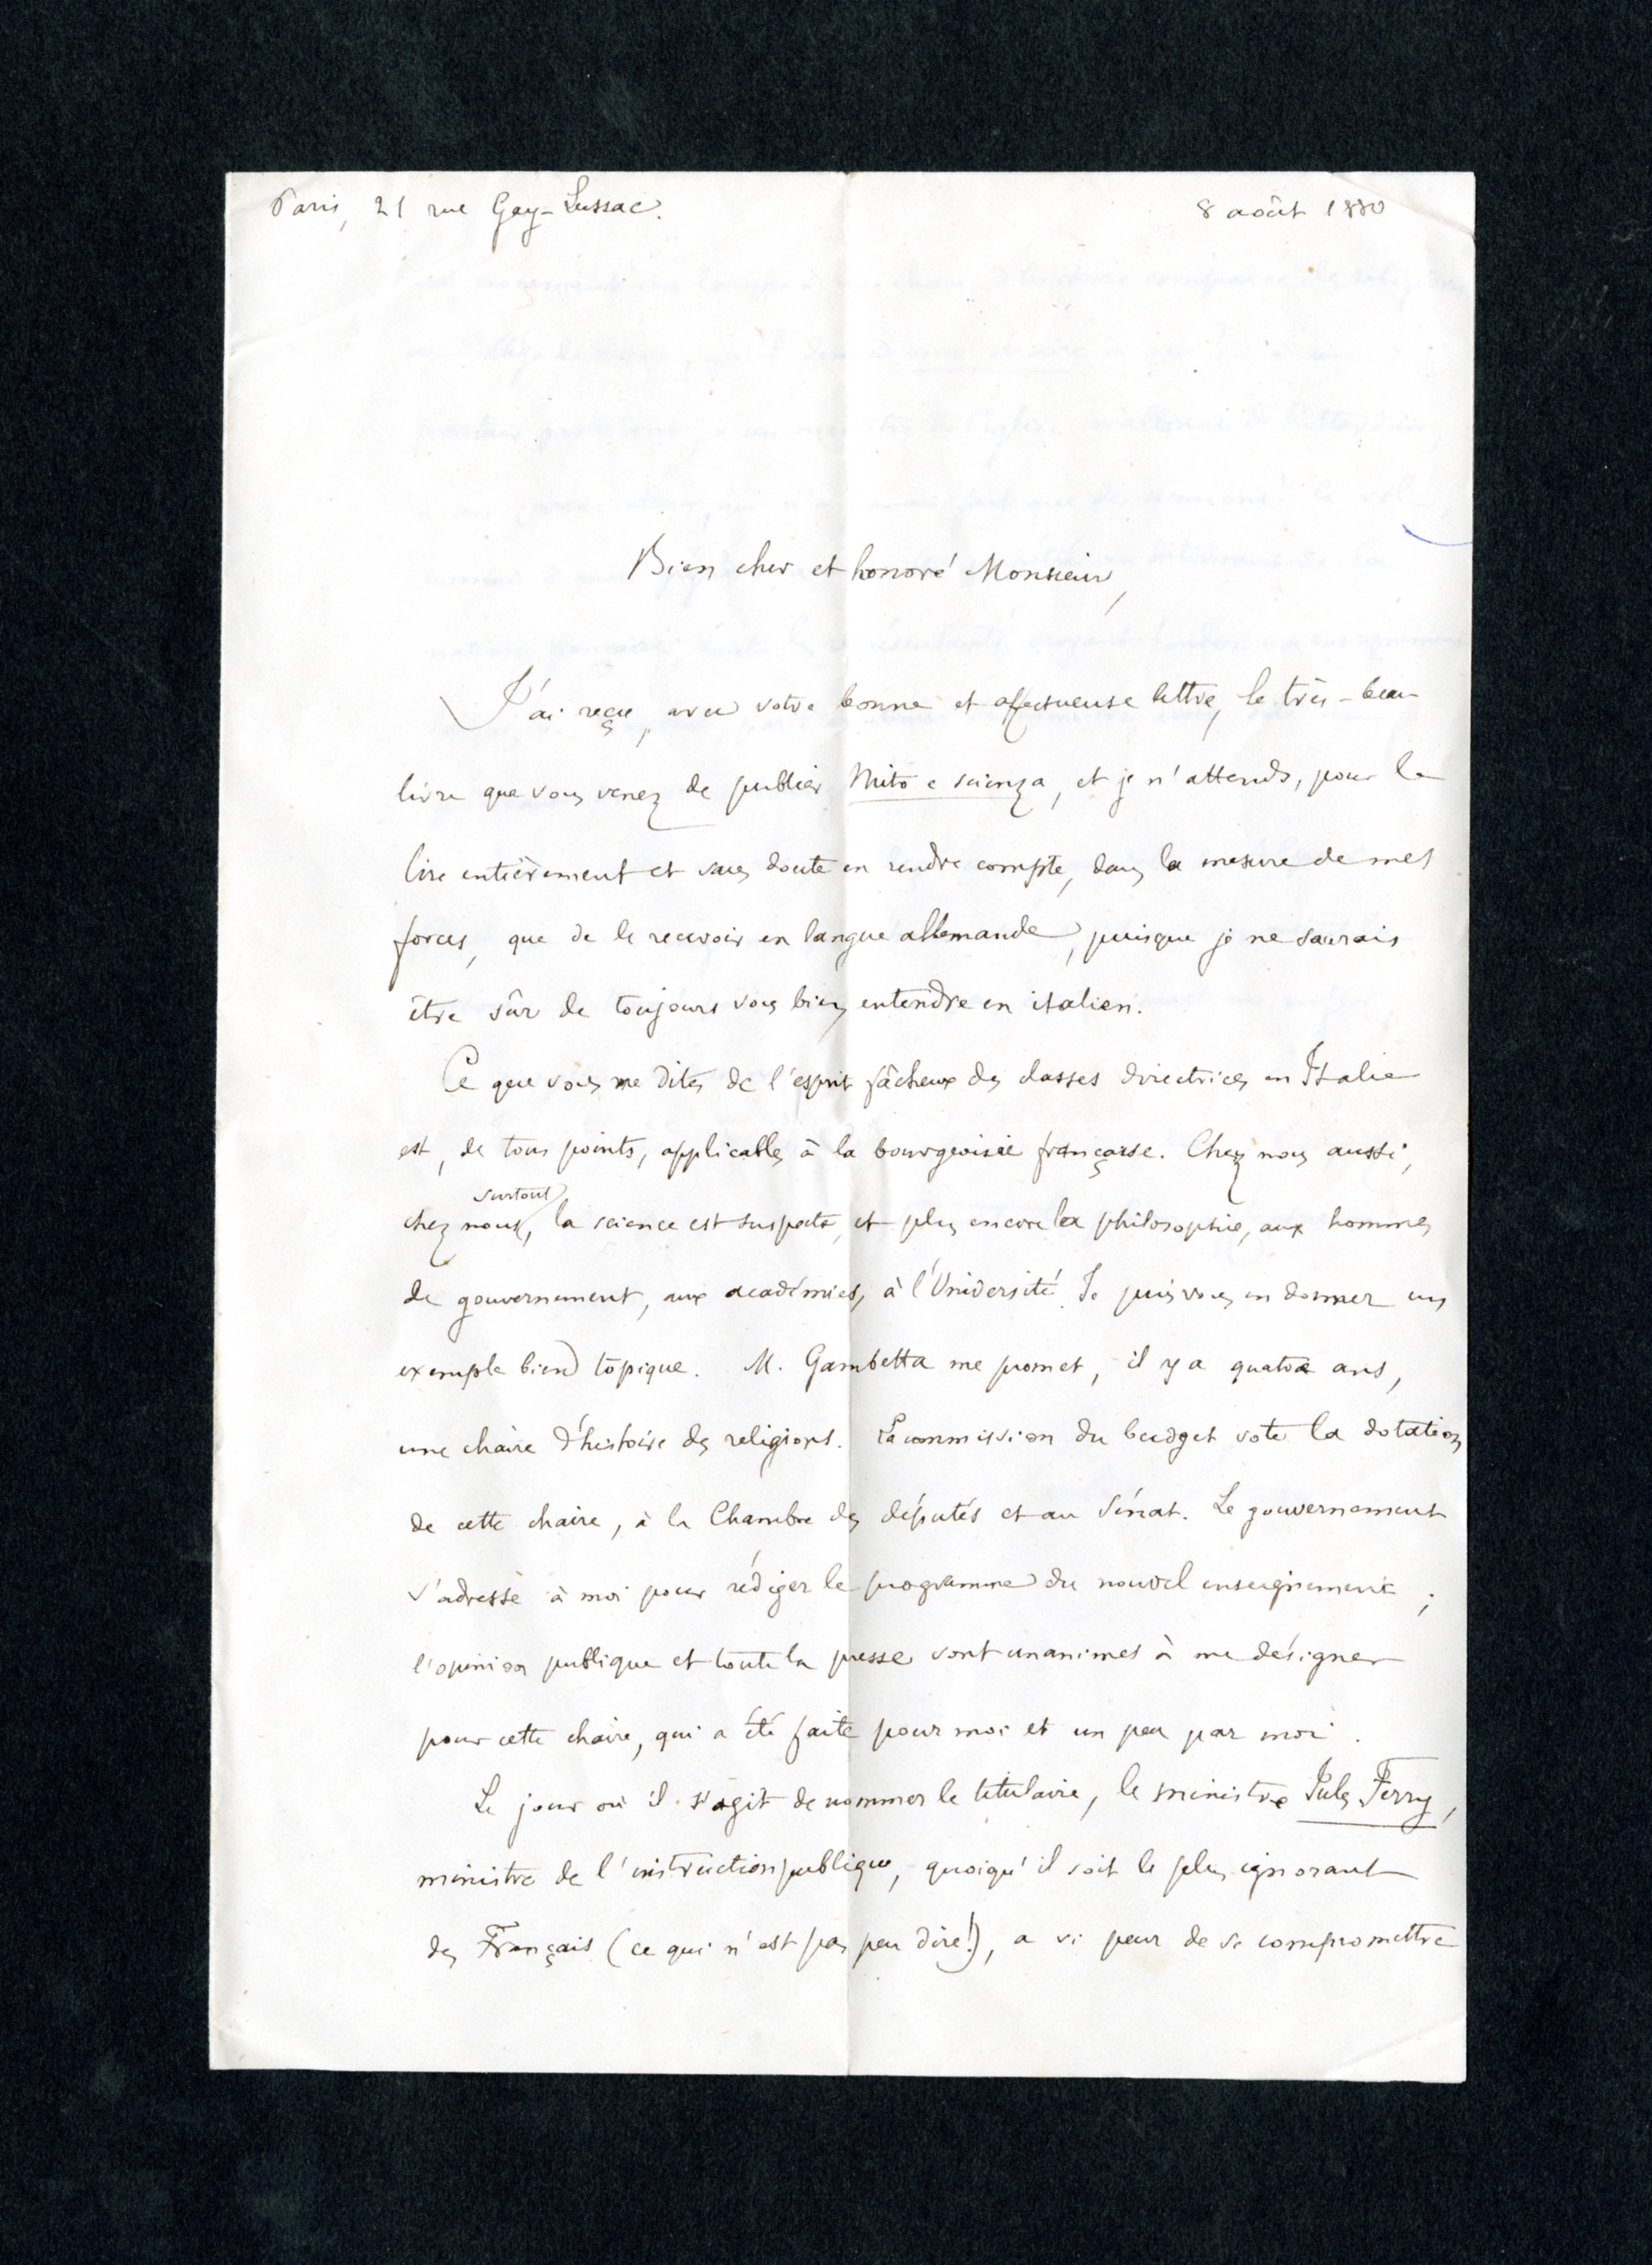 Paris, 21 rue Gay-Lussac.
8 août 1880
Bien cher et honoré Monsieur,
J'ai reçu, avec votre bonne et affectueuse lettre, le très-beau
livre que vous venez de publier Mito e scienza, et je n'attends, pour le
lire entièrement et sans doute en rendre compte, dans la mesure de mes
forces, que de le recevoir en langue allemande, puisque je ne saurais
être sûr de toujours vous bien entendre en italien.
Ce que vous me dites de l'esprit fâcheux des classes directrices en Italie
est, de tous points, applicable à la bourgeoisie française. Chez nous aussi,
surtout
chez nous, la science est suspecte, et plus encore la philosophie, aux hommes
de gouvernement, aux académies, à l'Université. Je puis vous en donner un
exemple bien topique. M. Gambetta me promet, il y a quatre ans,
une chaire d'histoire des religions. La commission du budget vote la dotation
de cette chaire, à la Chambre des députés et au Sénat. Le gouvernement
s'adresse à moi pour rédiger le programme du nouvel enseignement ;
l'opinion publique et toute la presse sont unanimes à me désigner
pour cette chaire, qui a été faite pour moi et un peu par moi.
Le jour où il s'agit de nommer le titulaire, le ministre Jules Ferry,
ministre de l'instruction publique, quoiqu'il soit le plus ignorant
des Français (ce qui n'est pas peu dire!), a si peur de se compromettre